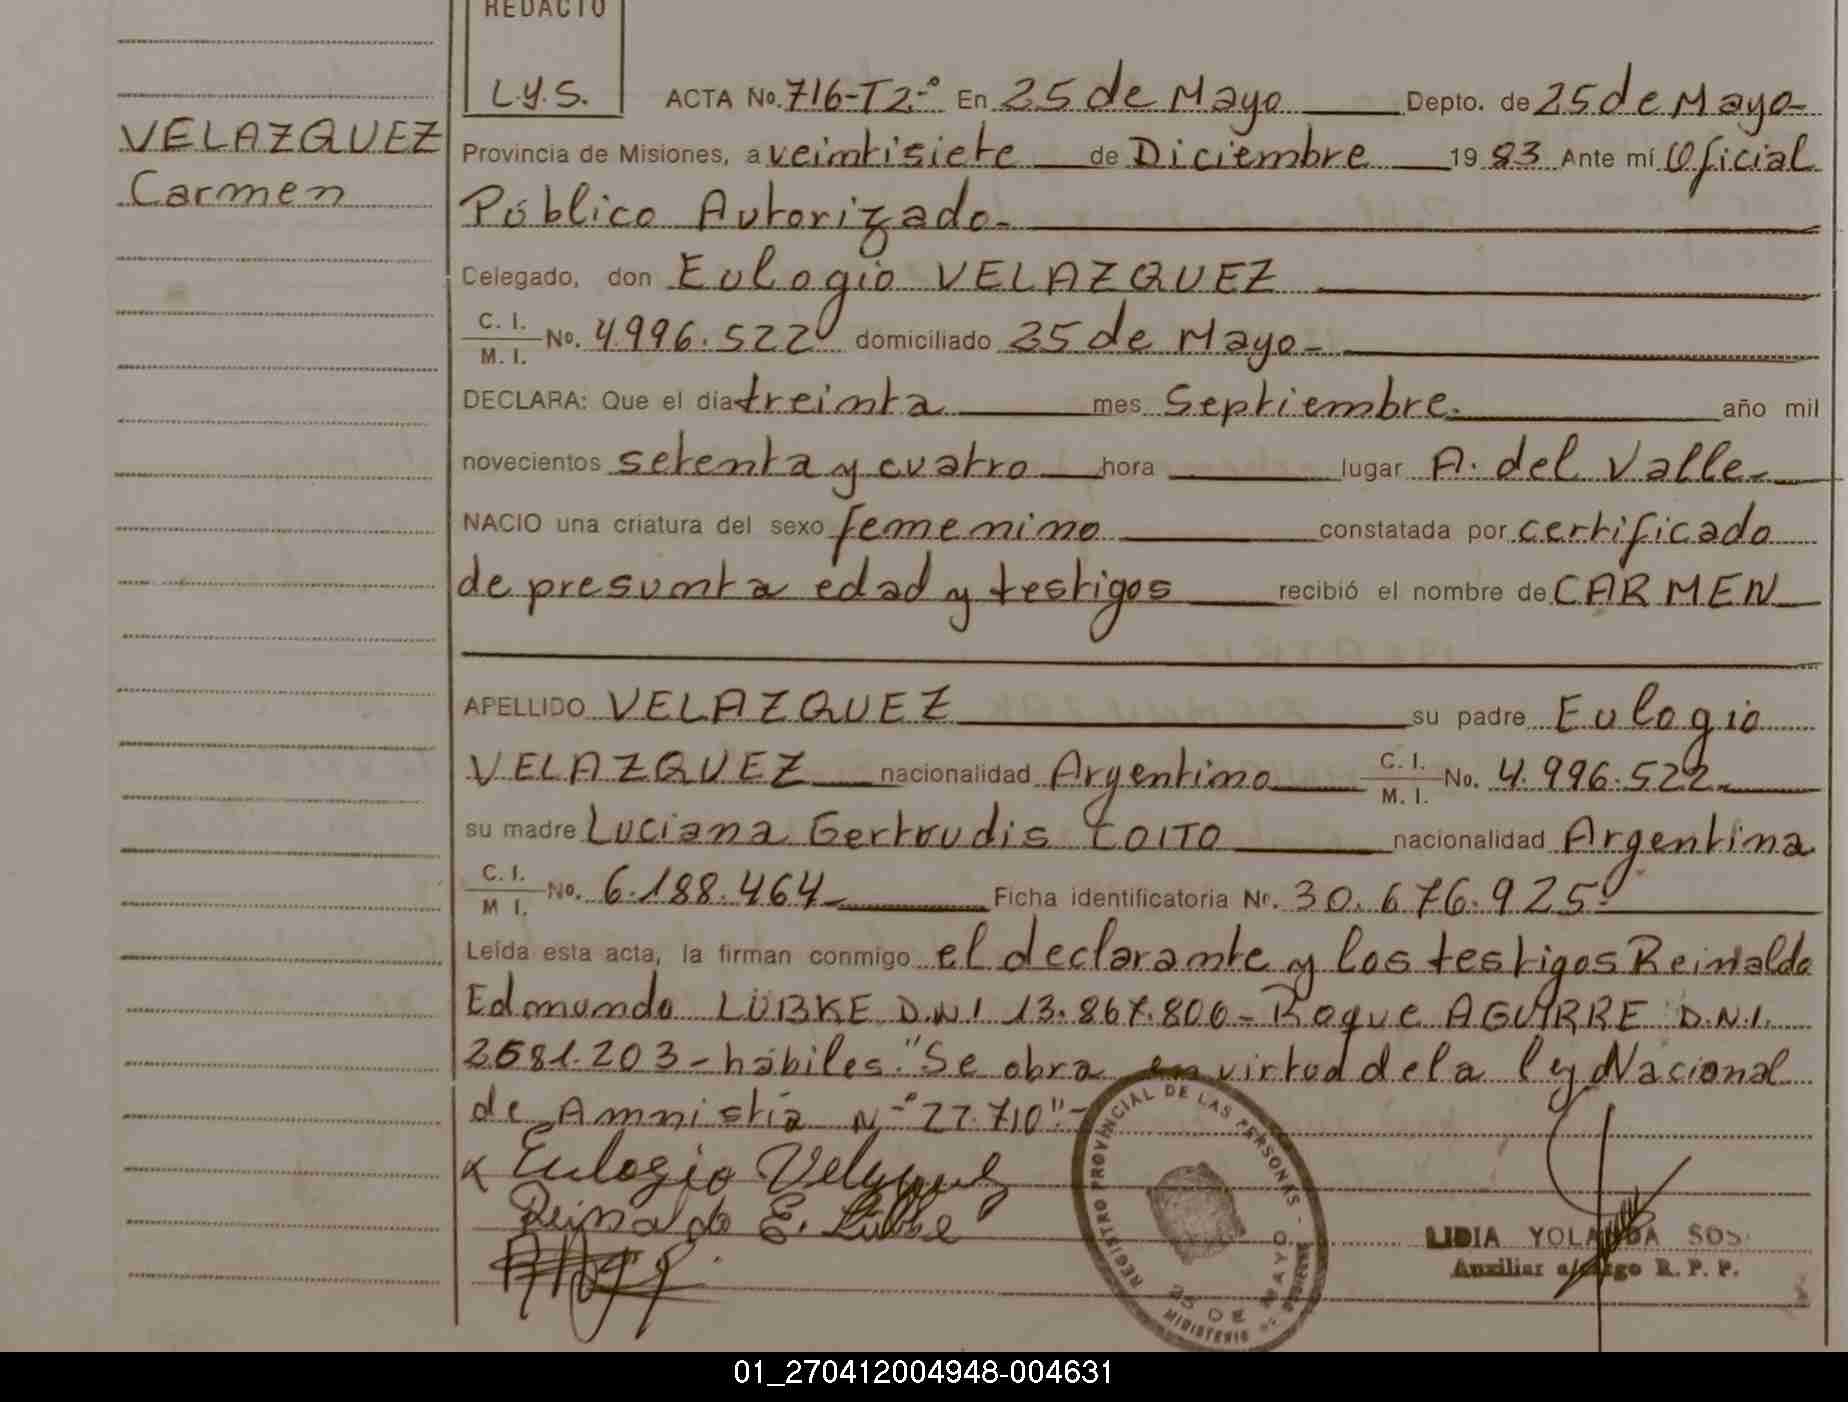 REDACTO
L.Y.S.
VELAZQUEZ
Carmen
ACTA No. 716-T2-° En 25 de Mayo Depto. de 25 de Mayo-
Provincia de Misiones, a veintisiete de Diciembre 19 83 Ante mí Oficial
Público Autorizado-
Celegado, don Eulogio VELAZQUEZ
C. I. / M. I. No. 4.996.522 domiciliado 25 de Mayo-
DECLARA: Que el día treinta mes Septiembre. año mil
novecientos setenta y cuatro hora lugar A. del Valle-
NACIO una criatura del sexo femenino constatada por certificado
de presunta edad y testigos recibió el nombre de CARMEN
APELLIDO VELAZQUEZ su padre Eulogio
VELAZQUEZ nacionalidad Argentino C. I. / M. I. No. 4.996.522-
su madre Luciana Gertrudis COITO nacionalidad Argentina
C. I. / M I. No. 6.188.464- Ficha identificatoria Nr. 30.676.925-
Leída esta acta, la firman conmigo el declarante y los testigos Reinaldo
Edmundo LÜBKE D.N.I 13.867.806- Roque AGUIRRE D.N.I.
2681.203- hábiles. "Se obra en virtud de la ley Nacional
de Amnistía N-° 22.710"-
x Eulogio Velazquez
Reinaldo E. Lübke
REGISTRO PROVINCIAL DE LAS PERSONAS -
25 DE MAYO
MINISTERIO DE
LIDIA YOLANDA SOS
Auxiliar a/cargo R. P. P.
01_270412004948-004631